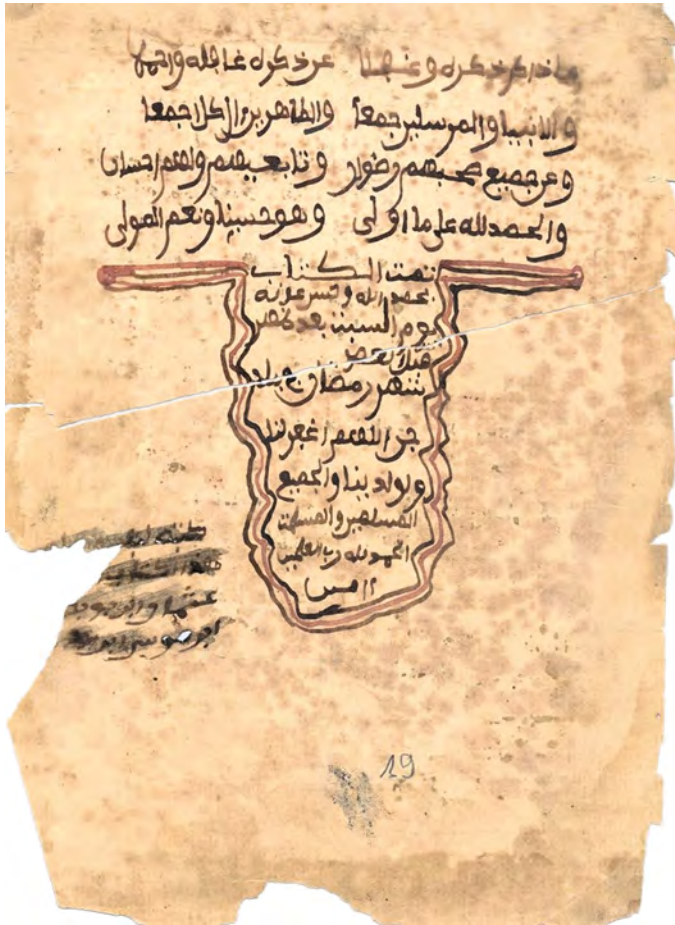 ماذاكر ذكره وغفلا عن ذكره غافله واجملا
والانبيا والمرسلين جمعا والطاهرين الكل اجمعا
وعن جميع صحبهم رضوان وتابعيهم ولهم احسان
والحمد لله على ما اولى وهو حسبنا ونعم المولى
تمت الكتاب
بحمد الله وحسن عونه
يوم السبت بعد ظهر
قبل العصر
شهر رمضان
اللهم اغفر لنا
ولولدينا ولجميع
المسلمين والمسلمت
الحمد لله رب العلمين
ءامين
19